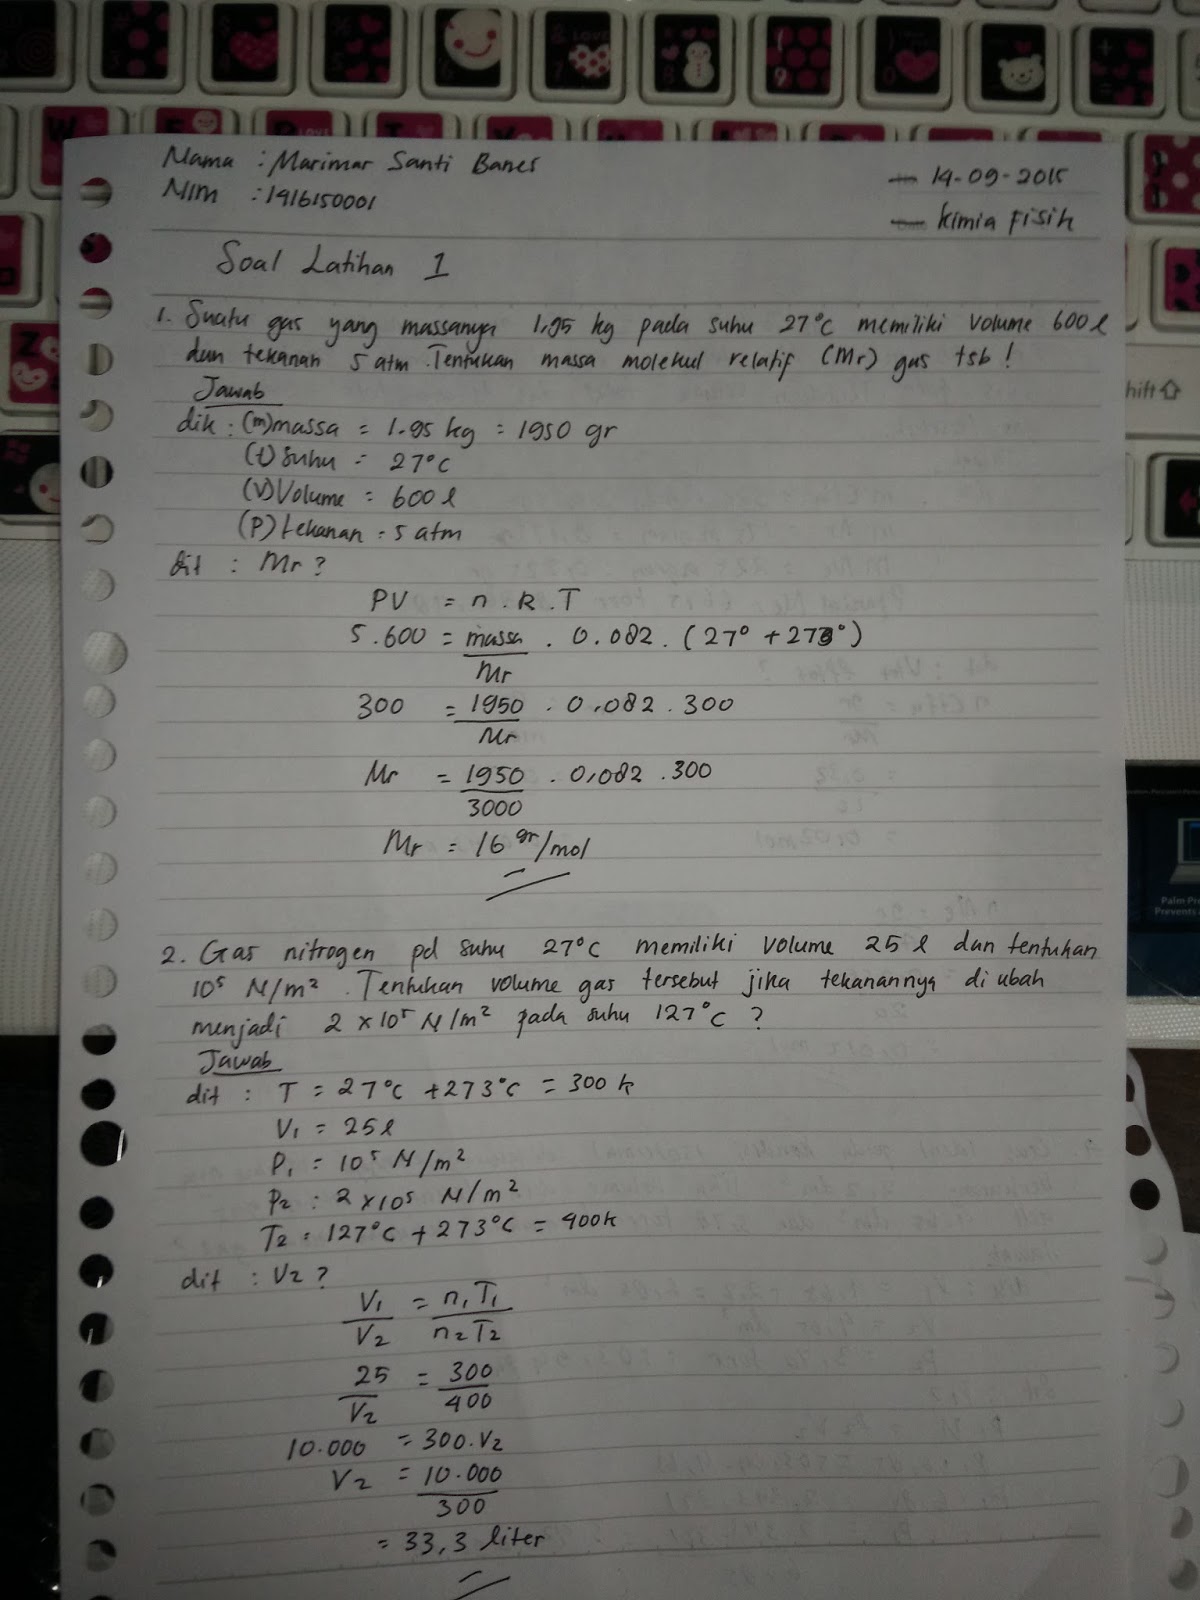 Nama : Marimar Santi Banes
NIM : 1416150001
14-09-2015
Kimia Fisik
Soal Latihan 1
1. Suatu gas yang massanya 1,95 kg pada suhu 27°C memiliki volume 600 l
dan tekanan 5 atm. Tentukan massa molekul relatif (Mr) gas tsb !
Jawab
dik : (m) massa = 1.95 kg = 1950 gr
(t) suhu = 27°C
(V) Volume = 600 l
(P) tekanan = 5 atm
dit : Mr ?
PV = n . R . T
5 . 600 = massa/Mr . 0.082 . (27° + 273°)
300 = 1950/Mr . 0,082 . 300
Mr = 1950/3000 . 0,082 . 300
Mr = 16 gr/mol
2. Gas nitrogen pd suhu 27°C memiliki volume 25 l dan tentukan
10⁵ N/m². Tentukan volume gas tersebut jika tekanannya di ubah
menjadi 2 x 10⁵ N/m² pada suhu 127°C ?
Jawab
dit : T = 27°C + 273°C = 300 k
V₁ = 25 l
P₁ = 10⁵ N/m²
P₂ : 2 x 10⁵ N/m²
T₂ = 127°C + 273°C = 400k
dit : V₂ ?
V₁/V₂ = n₁T₁/n₂T₂
25/V₂ = 300/400
10.000 = 300.V₂
V₂ = 10.000/300
= 33,3 liter
hift ⇧
Palm Pr
Prevents